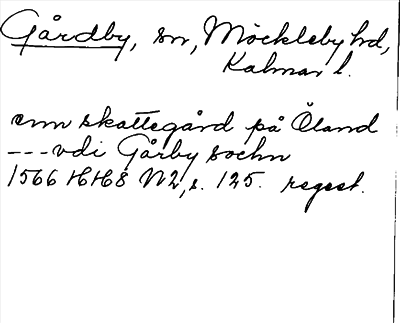 Gårdby, sn, Möckleby hd,
Kalmar l.
enn skattegård på Öland
---vdi Gårby sochn
1566 HH8 N2, s. 125. regest.